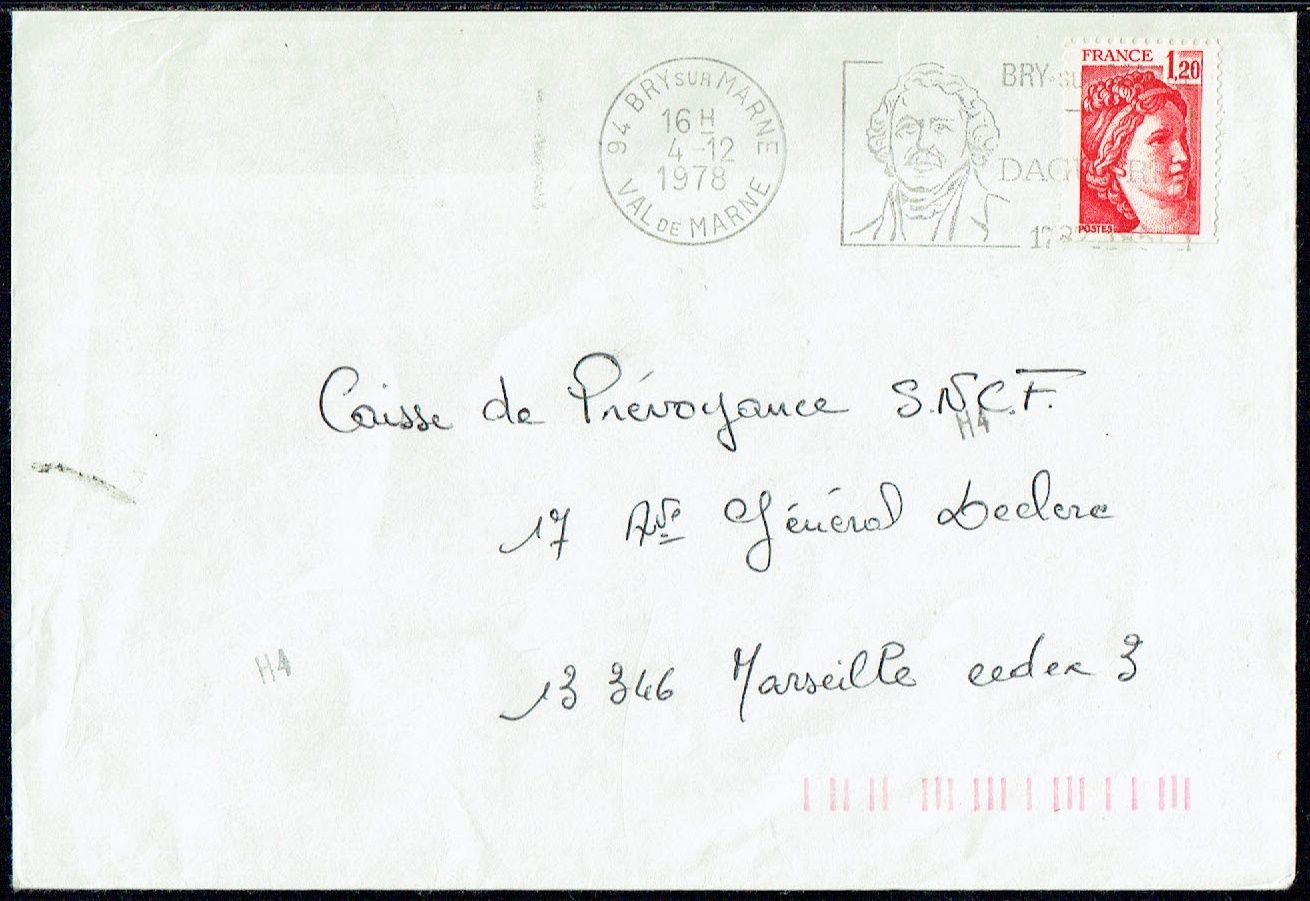 94 BRY SUR MARNE
16 H
4 -12
1978
VAL DE MARNE
BRY-SU
DAGUERRE
1787-1851
FRANCE 1,20
POSTES
Caisse de Prévoyance S.N.C.F.
H4
17 Ave Général Leclerc
H4
13 346 Marseille cedex 3